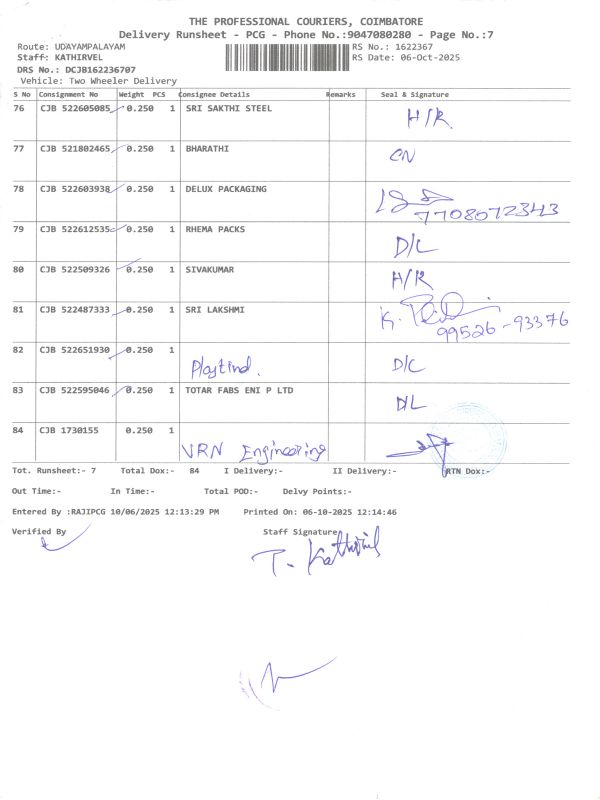 THE PROFESSIONAL COURIERS, COIMBATORE
Delivery Runsheet - PCG - Phone No.:9047080280 - Page No.:7
Route: UDAYAMPALAYAM RS No.: 1622367
Staff: KATHIRVEL RS Date: 06-Oct-2025
DRS No.: DCJB162236707
Vehicle: Two Wheeler Delivery
S No Consignment No Weight PCS Consignee Details Remarks Seal & Signature
76 CJB 522605085 0.250 1 SRI SAKTHI STEEL H/R
77 CJB 521802465 0.250 1 BHARATHI CN
78 CJB 522603938 0.250 1 DELUX PACKAGING
7708072343
79 CJB 522612535 0.250 1 RHEMA PACKS D/C
80 CJB 522509326 0.250 1 SIVAKUMAR H/R
81 CJB 522487333 0.250 1 SRI LAKSHMI K.
99526-93376
82 CJB 522651930 0.250 1 D/C
83 CJB 522595046 0.250 1 TOTAR FABS ENI P LTD D/L
84 CJB 1730155 0.250 1
VRN Engineering
Tot. Runsheet:- 7 Total Dox:- 84 I Delivery:- II Delivery:- RTN Dox:-
Out Time:- In Time:- Total POD:- Delvy Points:-
Entered By :RAJIPCG 10/06/2025 12:13:29 PM Printed On: 06-10-2025 12:14:46
Verified By Staff Signature
T. Kathirvel